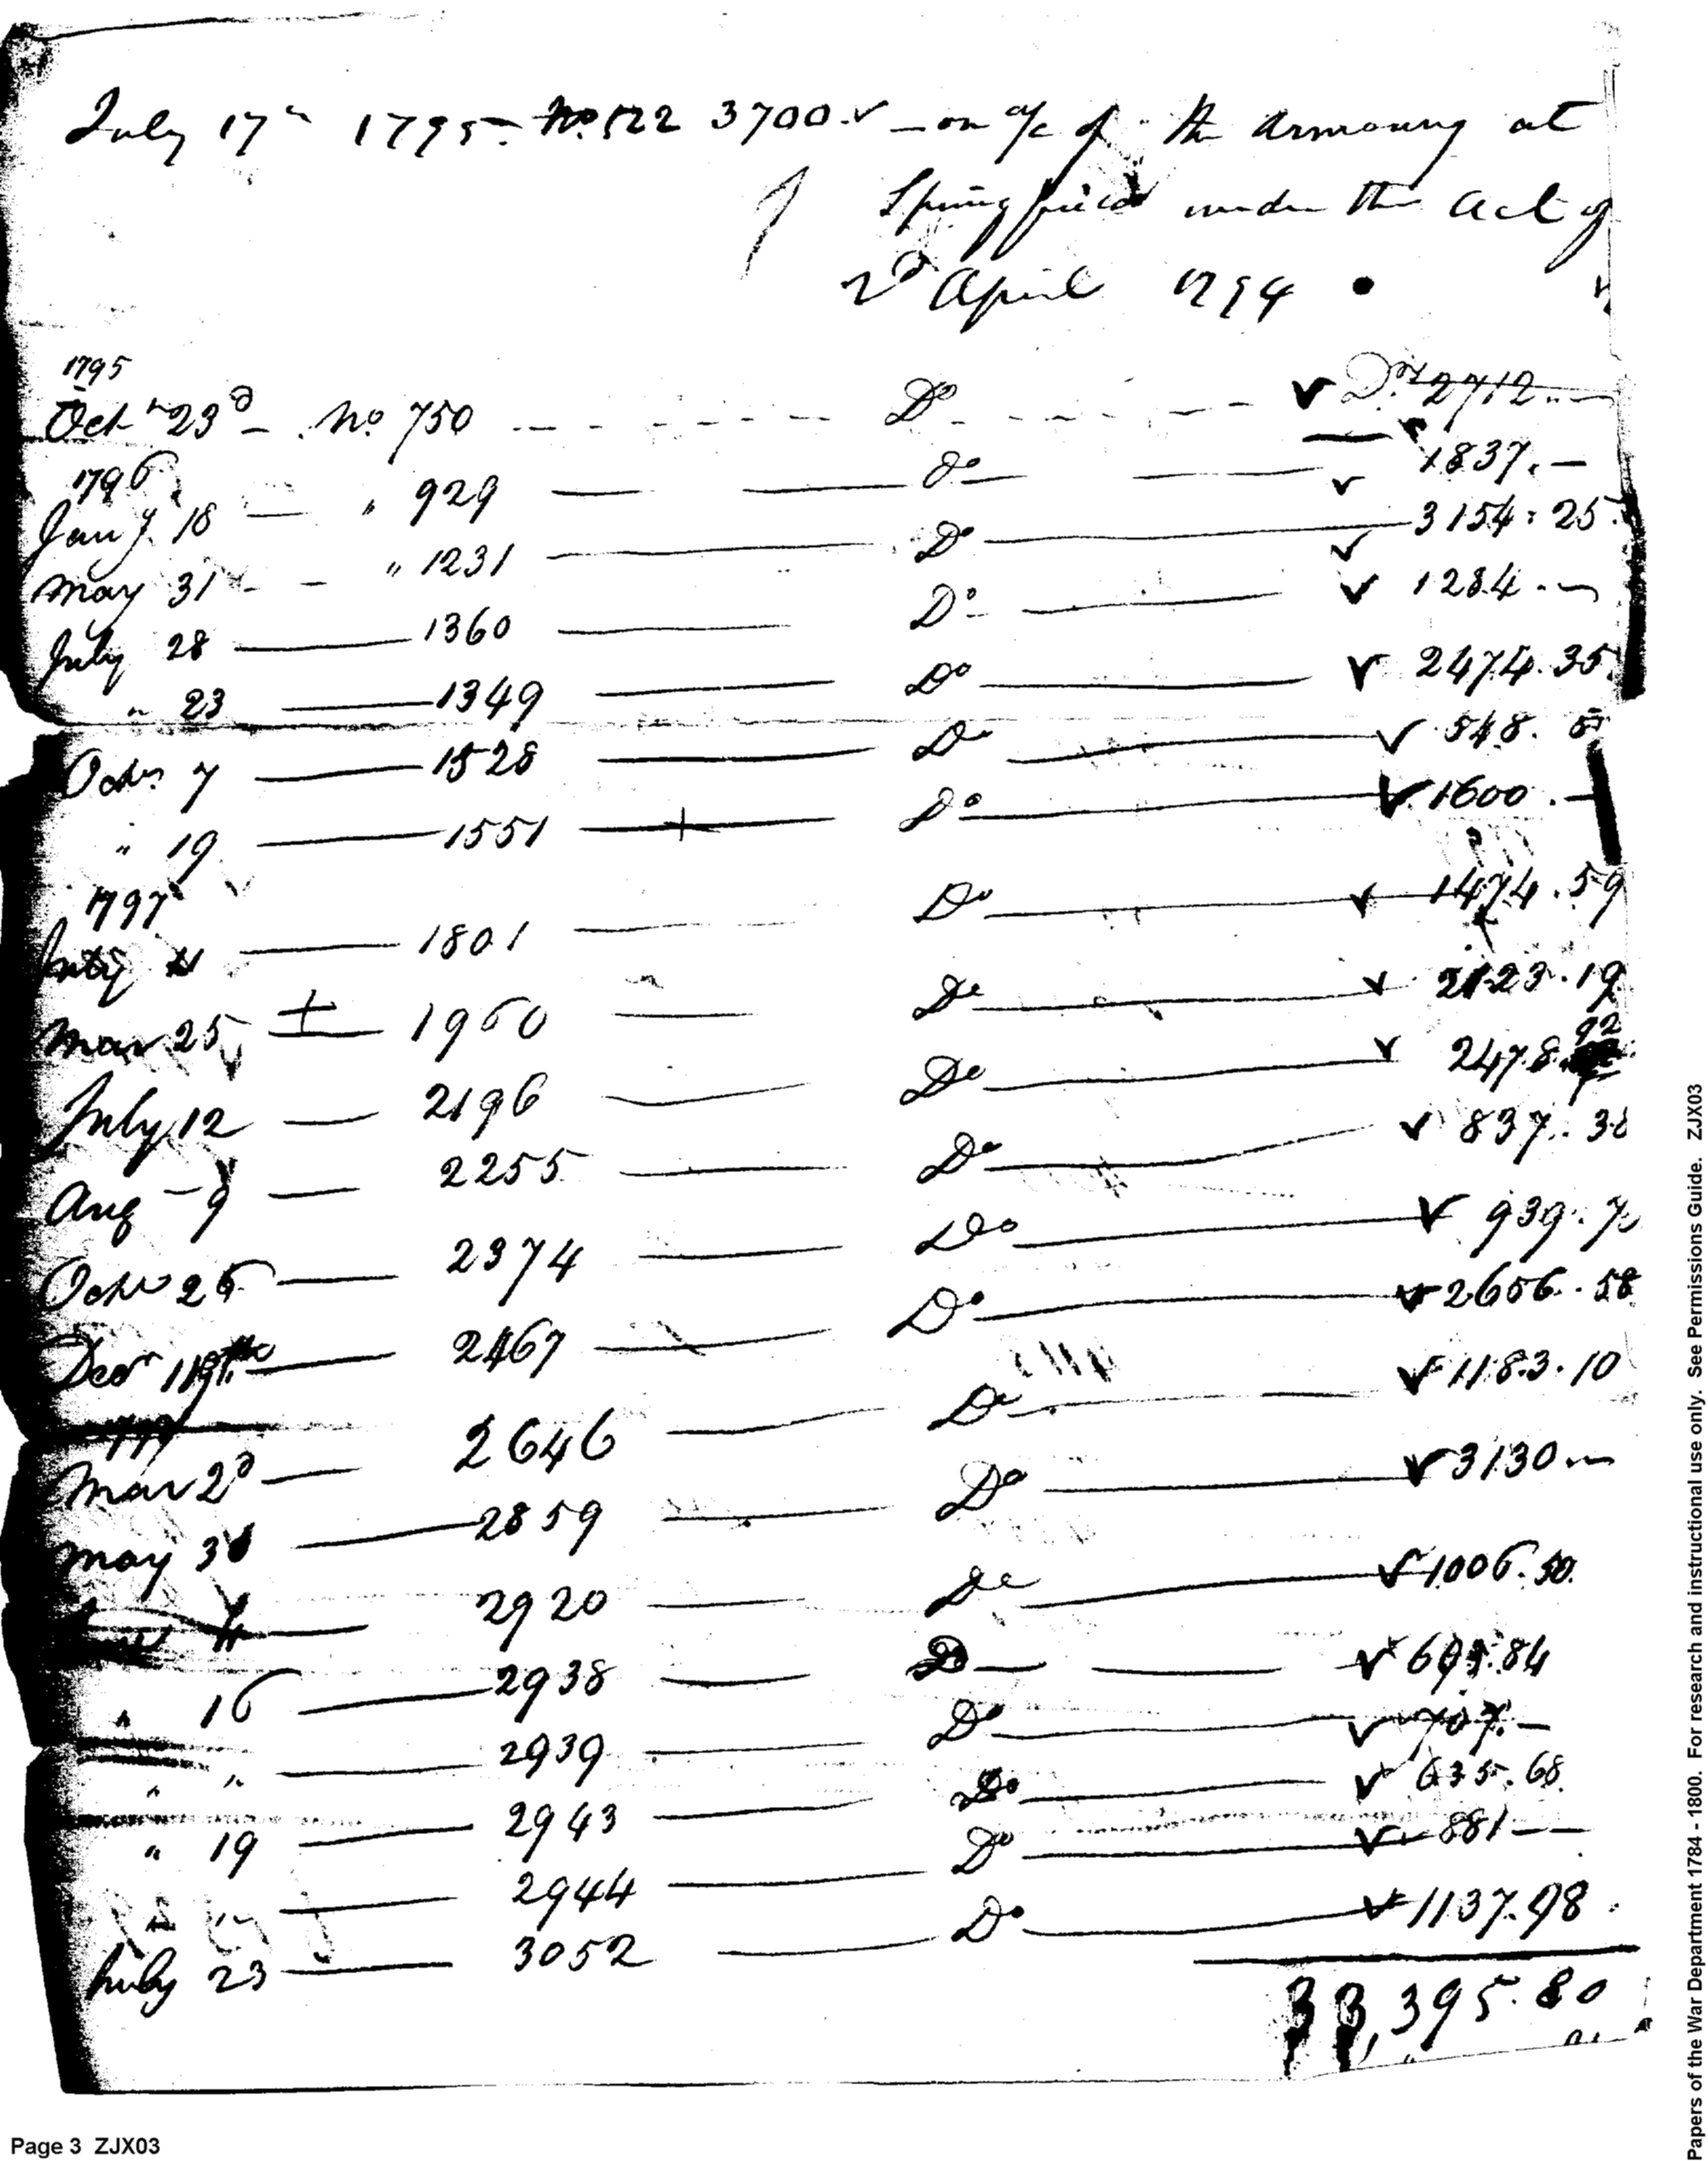 July 17th 1795. No. 522 3700. on a/c of the Armoury at
Springfield under the Act of
2d April 1794
1795
Octr 23d No. 750 Do Drs 2712.
1796
Jany 18 " 929 do 1837.
May 31 " 1231 Do 3154.25
July 28 1360 Do 1284.
" 23 1349 Do 2474.35
Octr. 7 1528 Do 548.
" 19 1551 Do 1600.
1797
1801 Do 1474.59
Mar 25 1960 Do 2123.19
July 12 2196 Do 2478.92
Aug 9 2255 Do 837.38
Octr 26 2374 Do 939.70
Decr 2467 Do 2656.58
Mar 2d 2646 Do 1183.10
May 2859 Do 3130
2920 Do 1006.50.
" 16 2938 Do 84
" " 2939 Do 707.
" 19 2943 Do 635.68.
" " 2944 Do 881
July 23 3052 Do 1137.98
33,395.80
Page 3 ZJX03
Papers of the War Department 1784 - 1800. For research and instructional use only. See Permissions Guide. ZJX03